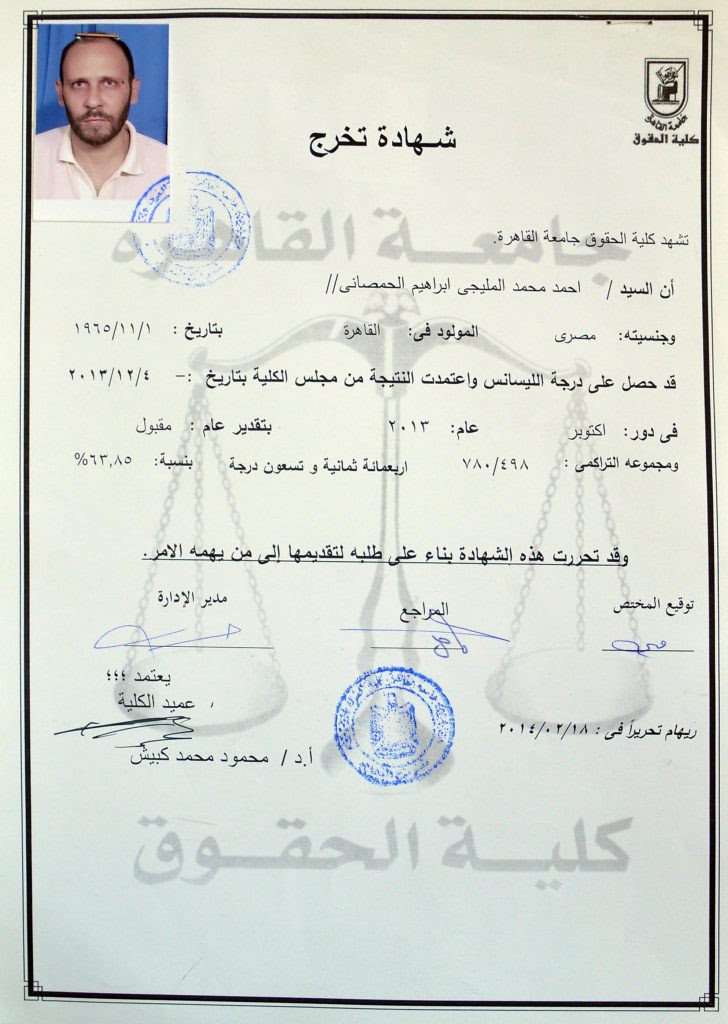 جامعة القاهرة
كلية الحقوق
شهادة تخرج
جامعة القاهرة
تشهد كلية الحقوق جامعة القاهرة.
أن السيد / احمد محمد المليجى ابراهيم الحمصانى//
وجنسيته: مصرى المولود فى: القاهرة بتاريخ : ١٩٦٥/١١/١
قد حصل على درجة الليسانس واعتمدت النتيجة من مجلس الكلية بتاريخ :- ٢٠١٣/١٢/٤
فى دور: اكتوبر عام: ٢٠١٣ بتقدير عام : مقبول
ومجموعه التراكمى : ٧٨٠/٤٩٨ اربعمانة ثمانية و تسعون درجة بنسبة: ٦٣,٨٥%
وقد تحررت هذه الشهادة بناء على طلبه لتقديمها إلى من يهمه الامر.
توقيع المختص المراجع مدير الإدارة
يعتمد ؛؛؛
عميد الكلية
أ.د / محمود محمد كبيش
ريهام تحريراً فى : ٢٠١٤/٠٢/١٨
كلية الحقوق